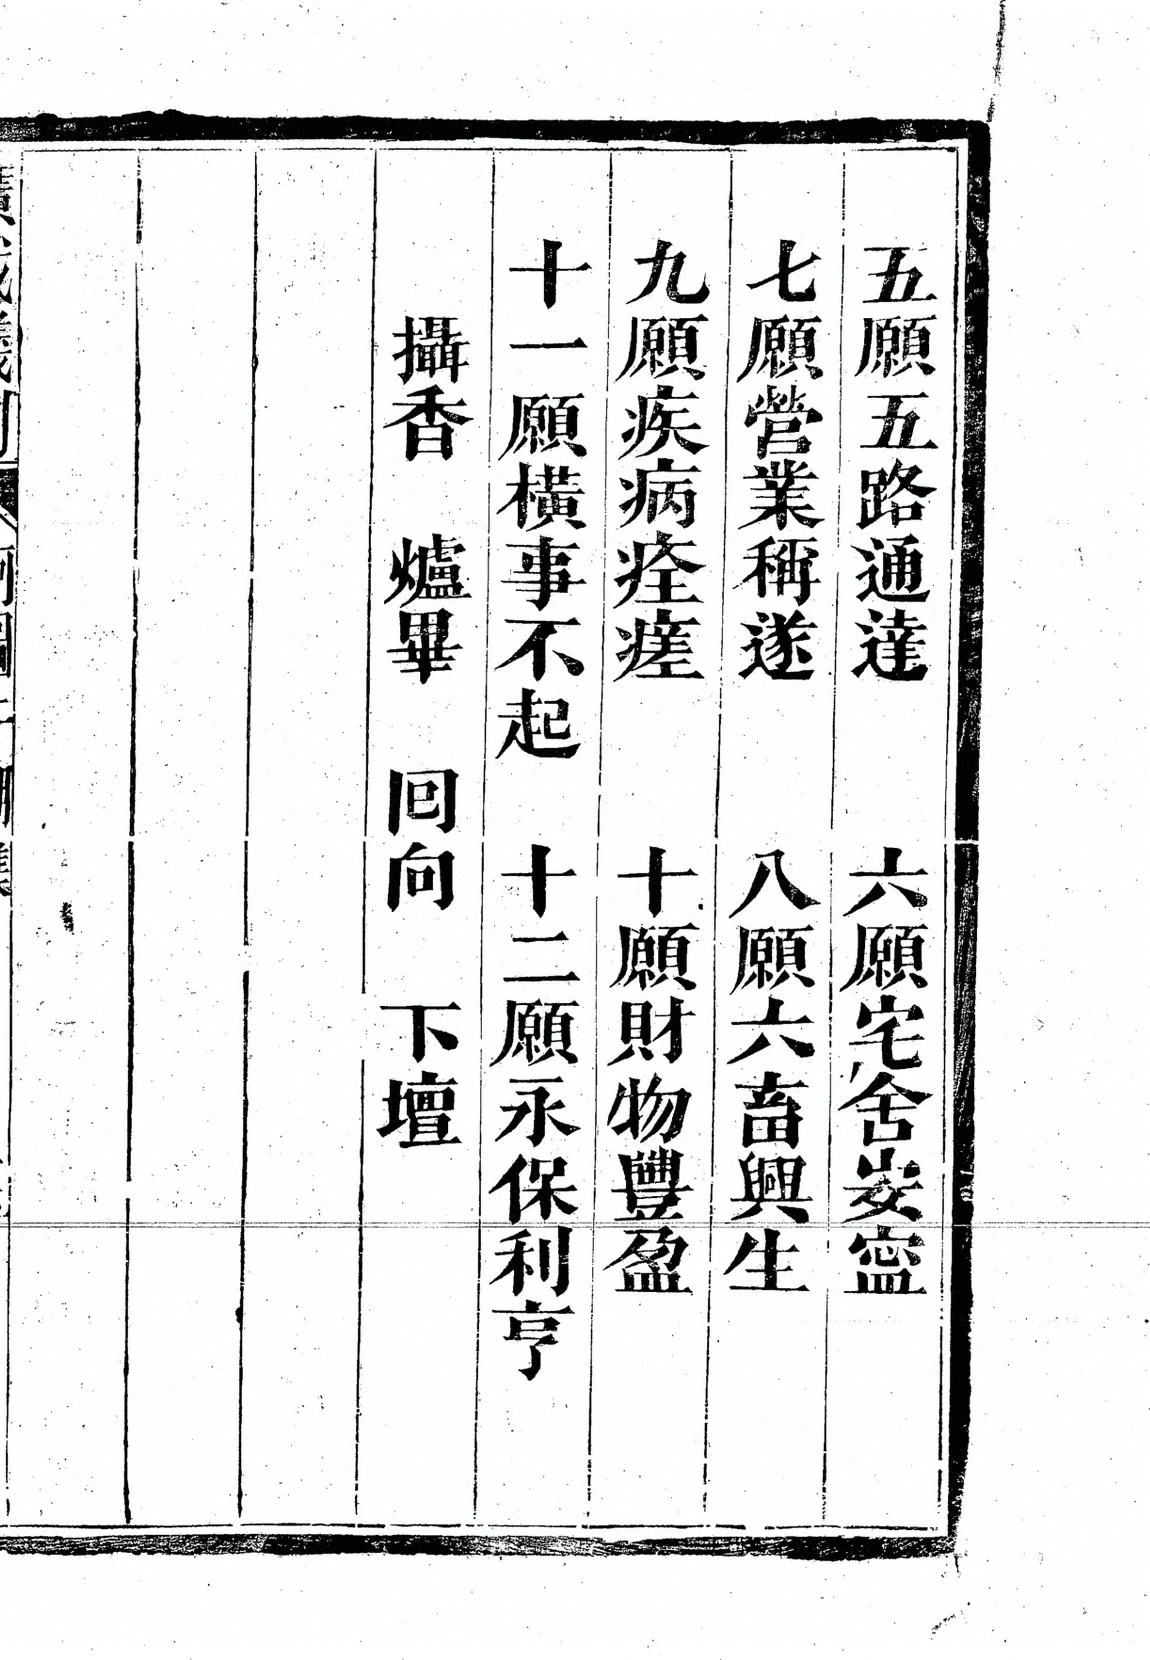 五願五路通達　六願宅舍安寍
七願營業稱遂　八願六畜興生
九願疾病痊瘥　十願財物豐盈
十一願橫事不起　十二願永保利亨
攝香　爐畢　回向　下壇